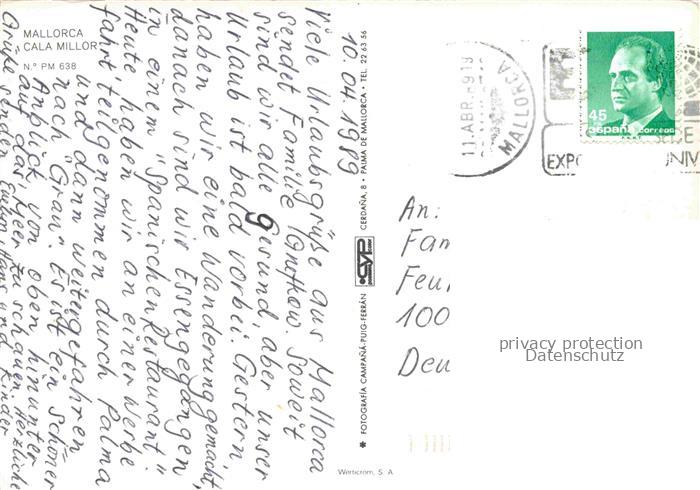 MALLORCA
CALA MILLOR
N.º PM 638
10.04.1989
Viele Urlaubsgrüße aus Mallorca
sendet Familie Soweit
sind wir alle gesund, aber unser
Urlaub ist bald vorbei. Gestern
haben wir eine Wanderung gemacht,
danach sind wir Essengegangen
in einem "Spanischen Restaurant".
Heute haben wir an einer Werbe
fahrt teilgenommen durch Palma
und dann weitergefahren
nach "Grau". Es ist ein schöner
Anblick von oben, hinunter
auf das Meer zu schauen. Herzliche
Grüße senden Hans und Kinder
✱ FOTOGRAFÍA CAMPAÑÁ-PUIG-FERRÁN
CYP
CERDAÑA, 8 • PALMA DE MALLORCA • TEL. 22 63 56
Werticrom, S. A
11.ABR.
MALLORCA
EXPO
UNIV
45
PTA
España correos
An:
Fam
Feu
100
Deu
privacy protection
Datenschutz